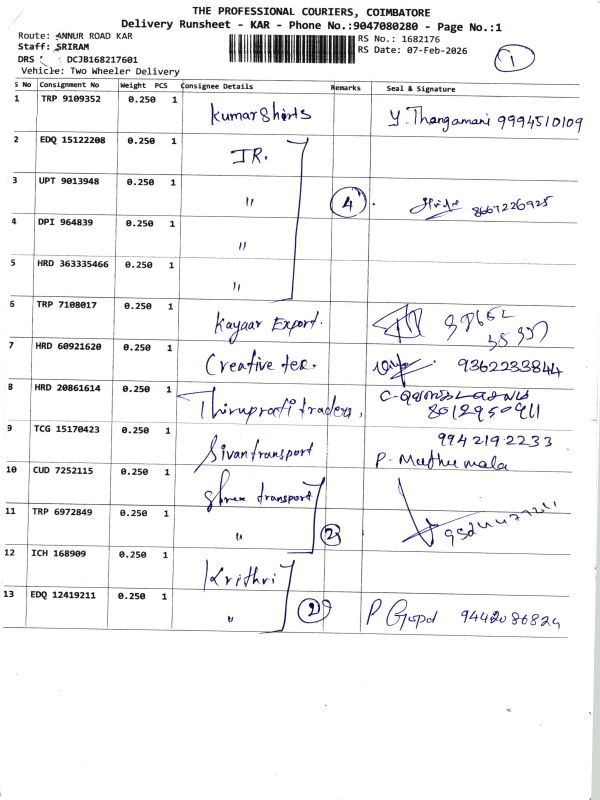 THE PROFESSIONAL COURIERS, COIMBATORE
Delivery Runsheet - KAR - Phone No.:9047080280 - Page No.:1
Route: ANNUR ROAD KAR
RS No.: 1682176
Staff: SRIRAM
RS Date: 07-Feb-2026
1
DRS : DCJB168217601
Vehicle: Two Wheeler Delivery
S No Consignment No Weight PCS Consignee Details Remarks Seal & Signature
1 TRP 9109352 0.250 1 Kumar Shirts Y. Thangamani 9994510109
2 EDQ 15122208 0.250 1 JR.
3 UPT 9013948 0.250 1 " 4 8667226925
4 DPI 964839 0.250 1 "
5 HRD 363335466 0.250 1 "
6 TRP 7108017 0.250 1 Kayaar Export.
7 HRD 60921620 0.250 1 Creative tex. 9362233844
8 HRD 20861614 0.250 1 Thiruprati traders, 8012950911
9 TCG 15170423 0.250 1 Sivan transport 994 219 2233
P. Muthu mala
10 CUD 7252115 0.250 1 Shree transport
11 TRP 6972849 0.250 1 " 2
12 ICH 168909 0.250 1 Krithri
13 EDQ 12419211 0.250 1 " 2 P Gopal 9442086824